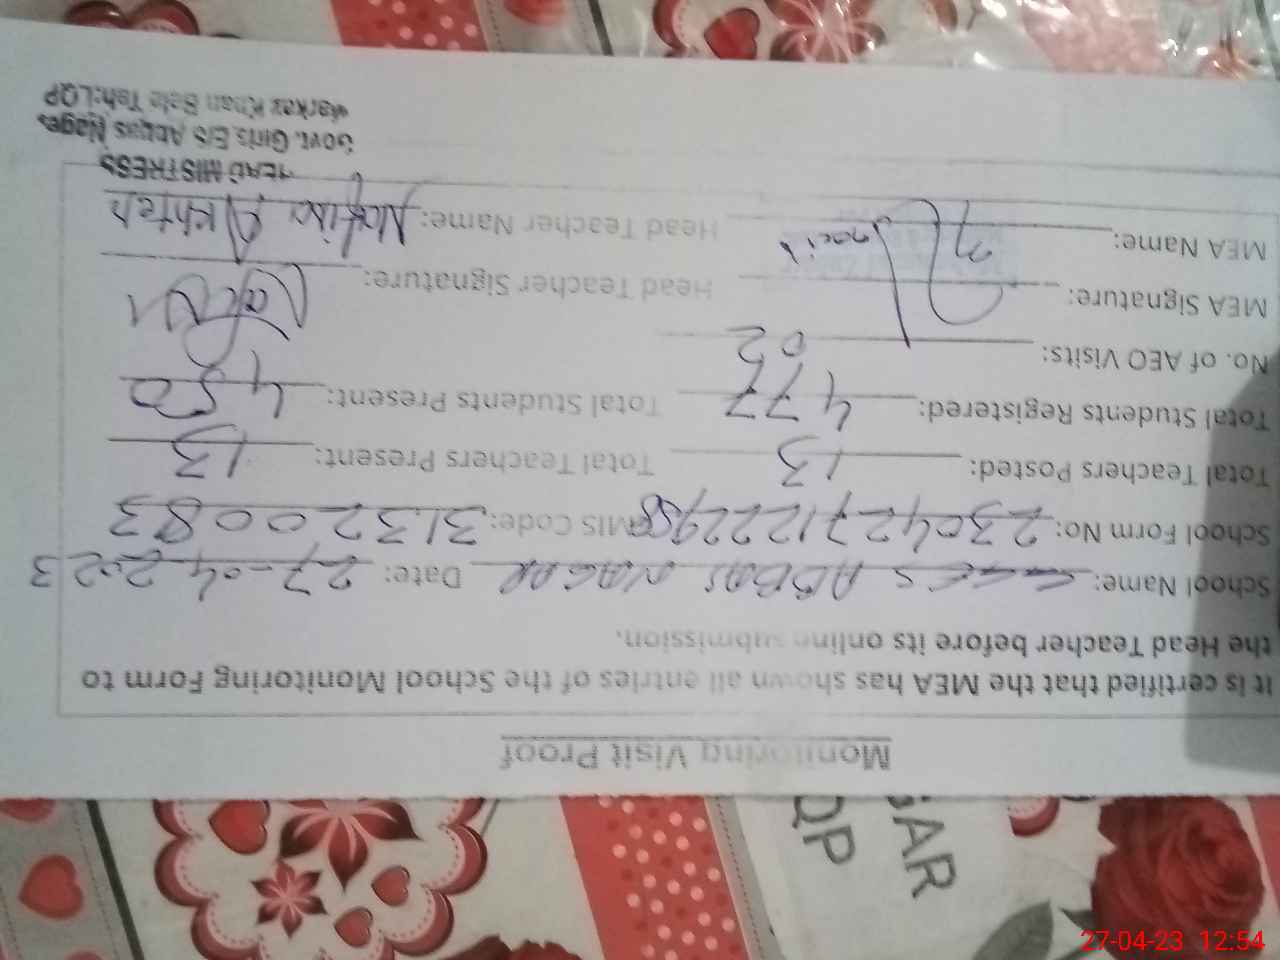 Monitoring Visit Proof
It is certified that the MEA has shown all entries of the School Monitoring Form to
the Head Teacher before its online submission.
School Name: GGES ABBAS NAGAR Date: 27-04-2023
School Form No: EMIS Code: 31320083
Total Teachers Posted: 13 Total Teachers Present: 13
Total Students Registered: 477 Total Students Present: 450
No. of AEO Visits: 02
MEA Signature: Head Teacher Signature:
MEA Name: Head Teacher Name: Nafisa Akhter
HEAD MISTRESS
Govt. Girls E/S Abbas Nagar
Markaz Khan Bela Teh:LQP
GAR
QP
27-04-23 12:54